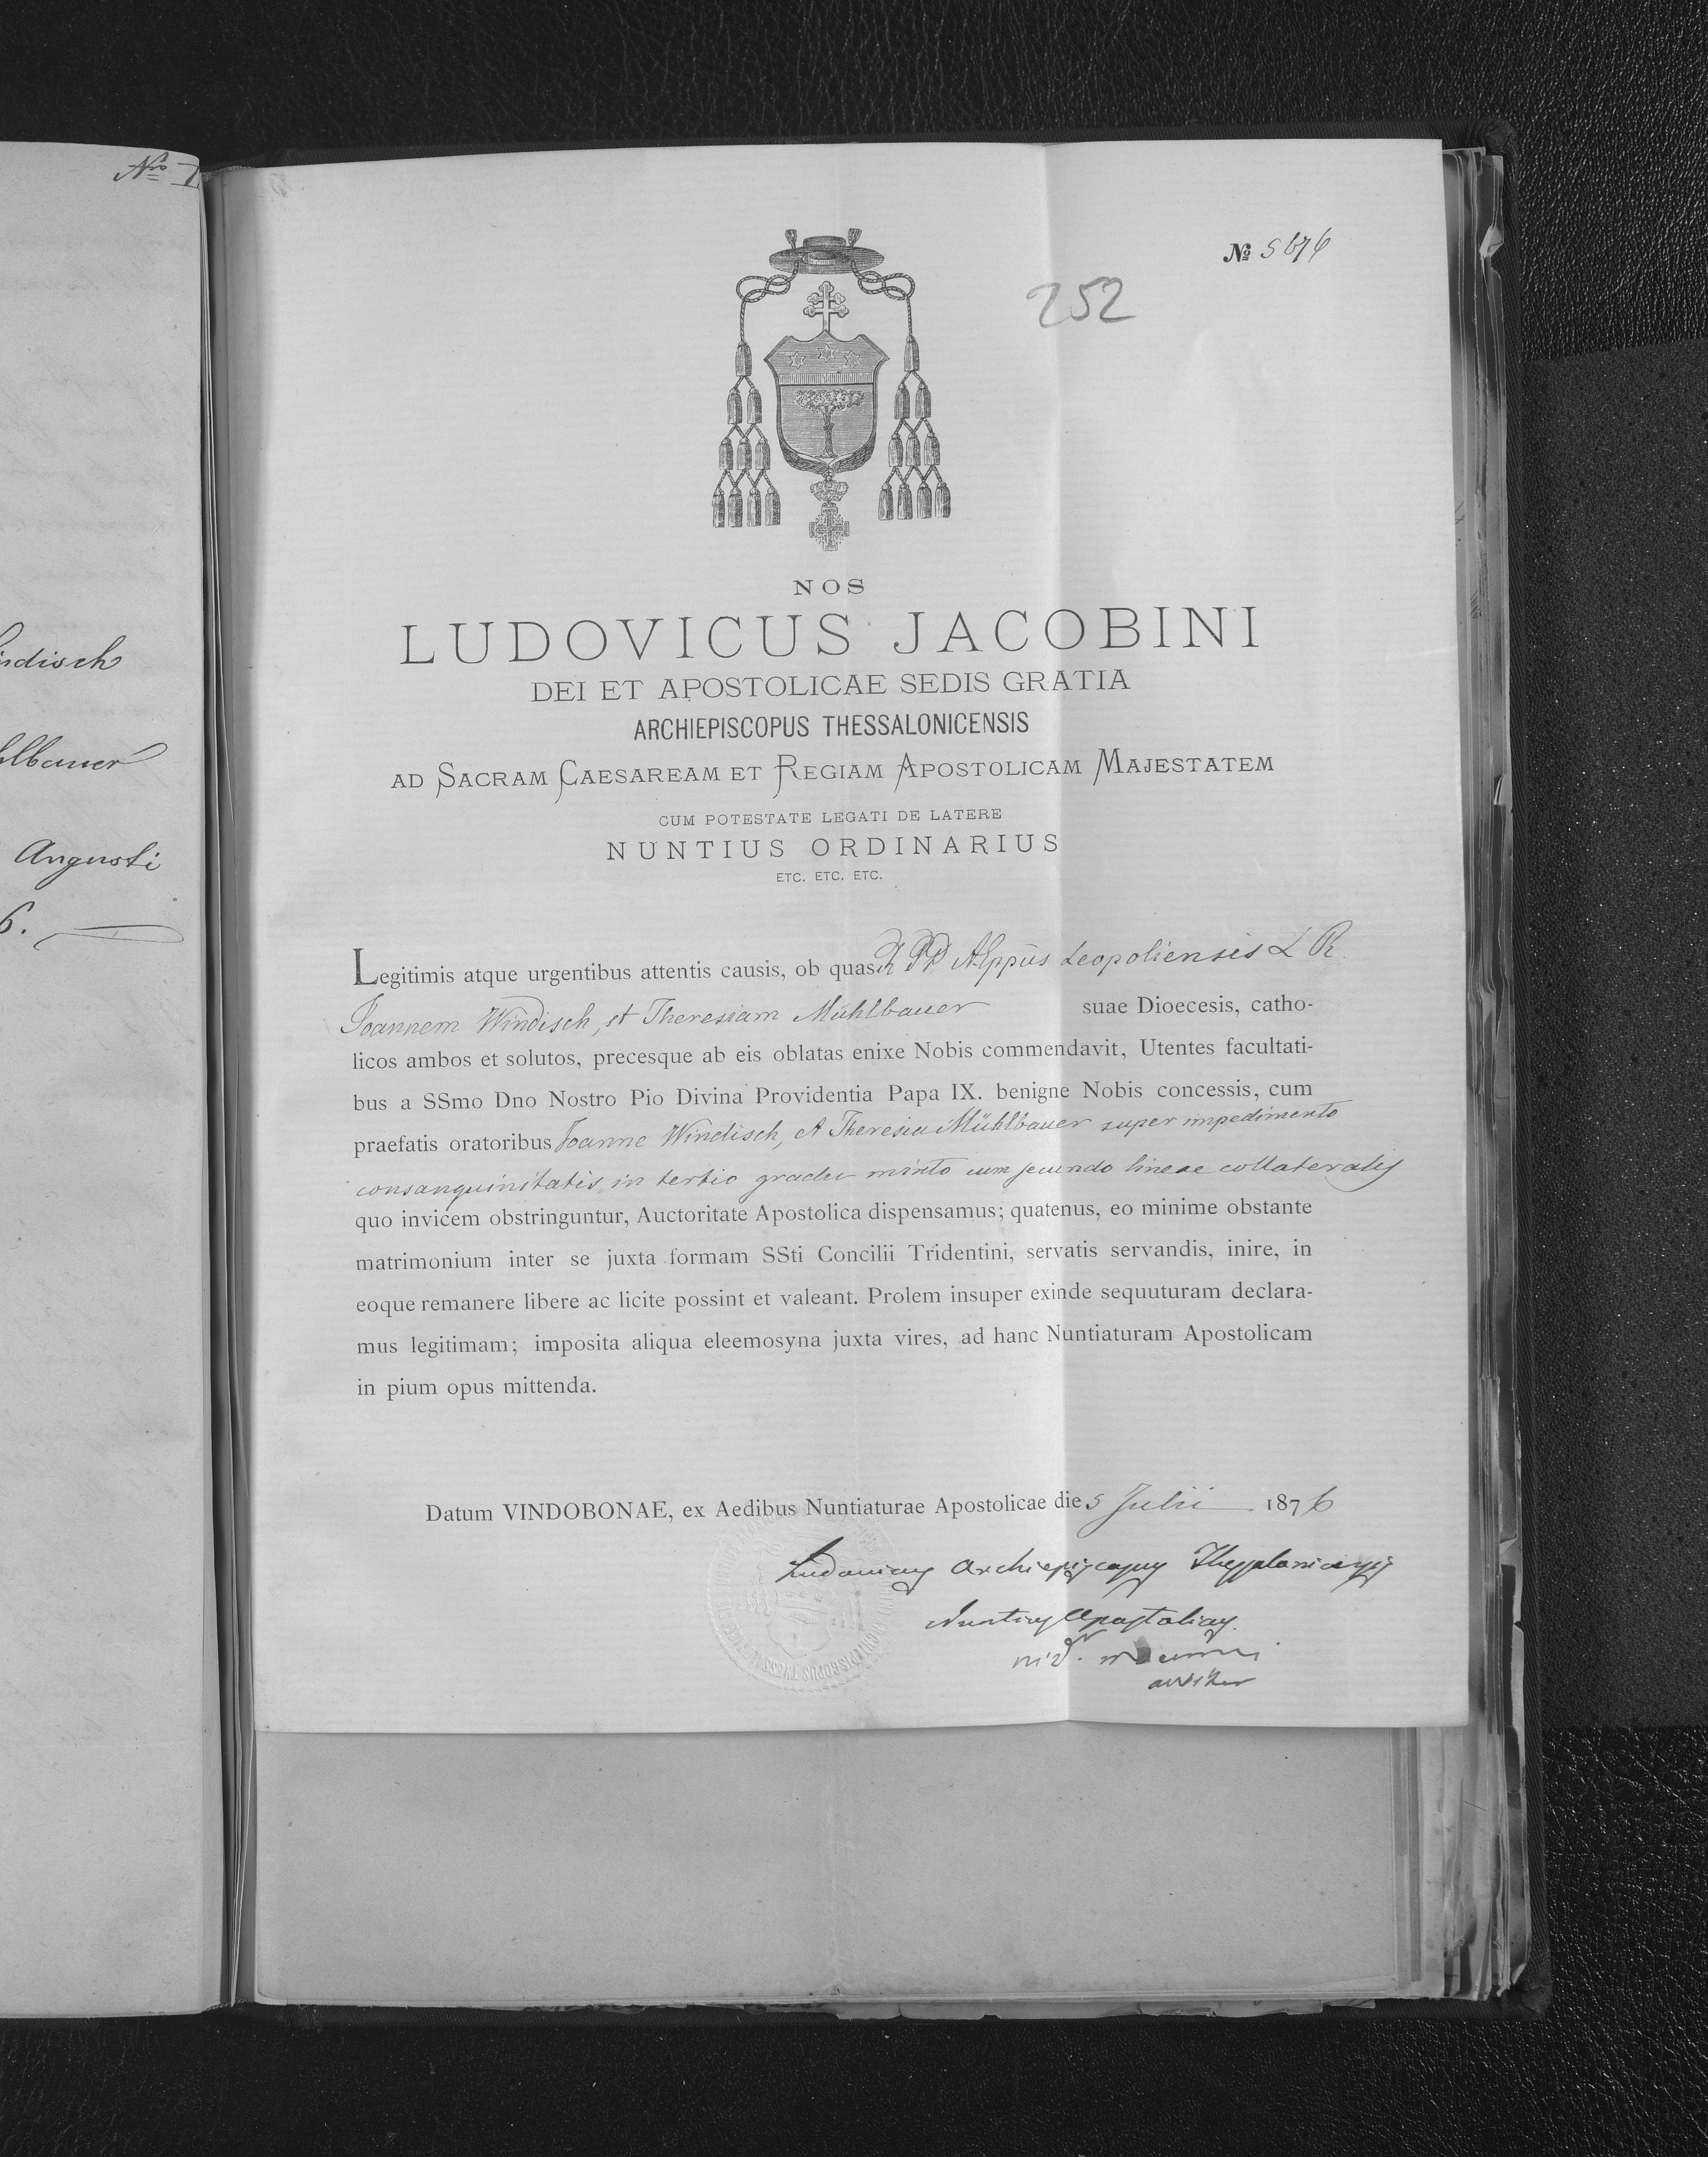 Nro
indisch
hlbauer
Augusti
6.
№ 5676
252
NOS
LUDOVICUS JACOBINI
DEI ET APOSTOLICAE SEDIS GRATIA
ARCHIEPISCOPUS THESSALONICENSIS
AD SACRAM CAESAREAM ET REGIAM APOSTOLICAM MAJESTATEM
CUM POTESTATE LEGATI DE LATERE
NUNTIUS ORDINARIUS
ETC. ETC. ETC.
Legitimis atque urgentibus attentis causis, ob quas R PD AEppus Leopoliensis L R.
Joannem Windisch, et Theresiam Mühlbauer suae Dioecesis, catho-
licos ambos et solutos, precesque ab eis oblatas enixe Nobis commendavit, Utentes facultati-
bus a SSmo Dno Nostro Pio Divina Providentia Papa IX. benigne Nobis concessis, cum
praefatis oratoribus Joanne Windisch, et Theresia Mühlbauer super impedimento
consanguinitatis in tertio gradu mixto cum secundo lineae collateralis
quo invicem obstringuntur, Auctoritate Apostolica dispensamus; quatenus, eo minime obstante
matrimonium inter se juxta formam SSti Concilii Tridentini, servatis servandis, inire, in
eoque remanere libere ac licite possint et valeant. Prolem insuper exinde sequuturam declara-
mus legitimam; imposita aliqua eleemosyna juxta vires, ad hanc Nuntiaturam Apostolicam
in pium opus mittenda.
Datum VINDOBONAE, ex Aedibus Nuntiaturae Apostolicae die 5 Julii 1876
Ludovicus Archiepiscopus Thessalonicensis
Nuntius Apostolicus.